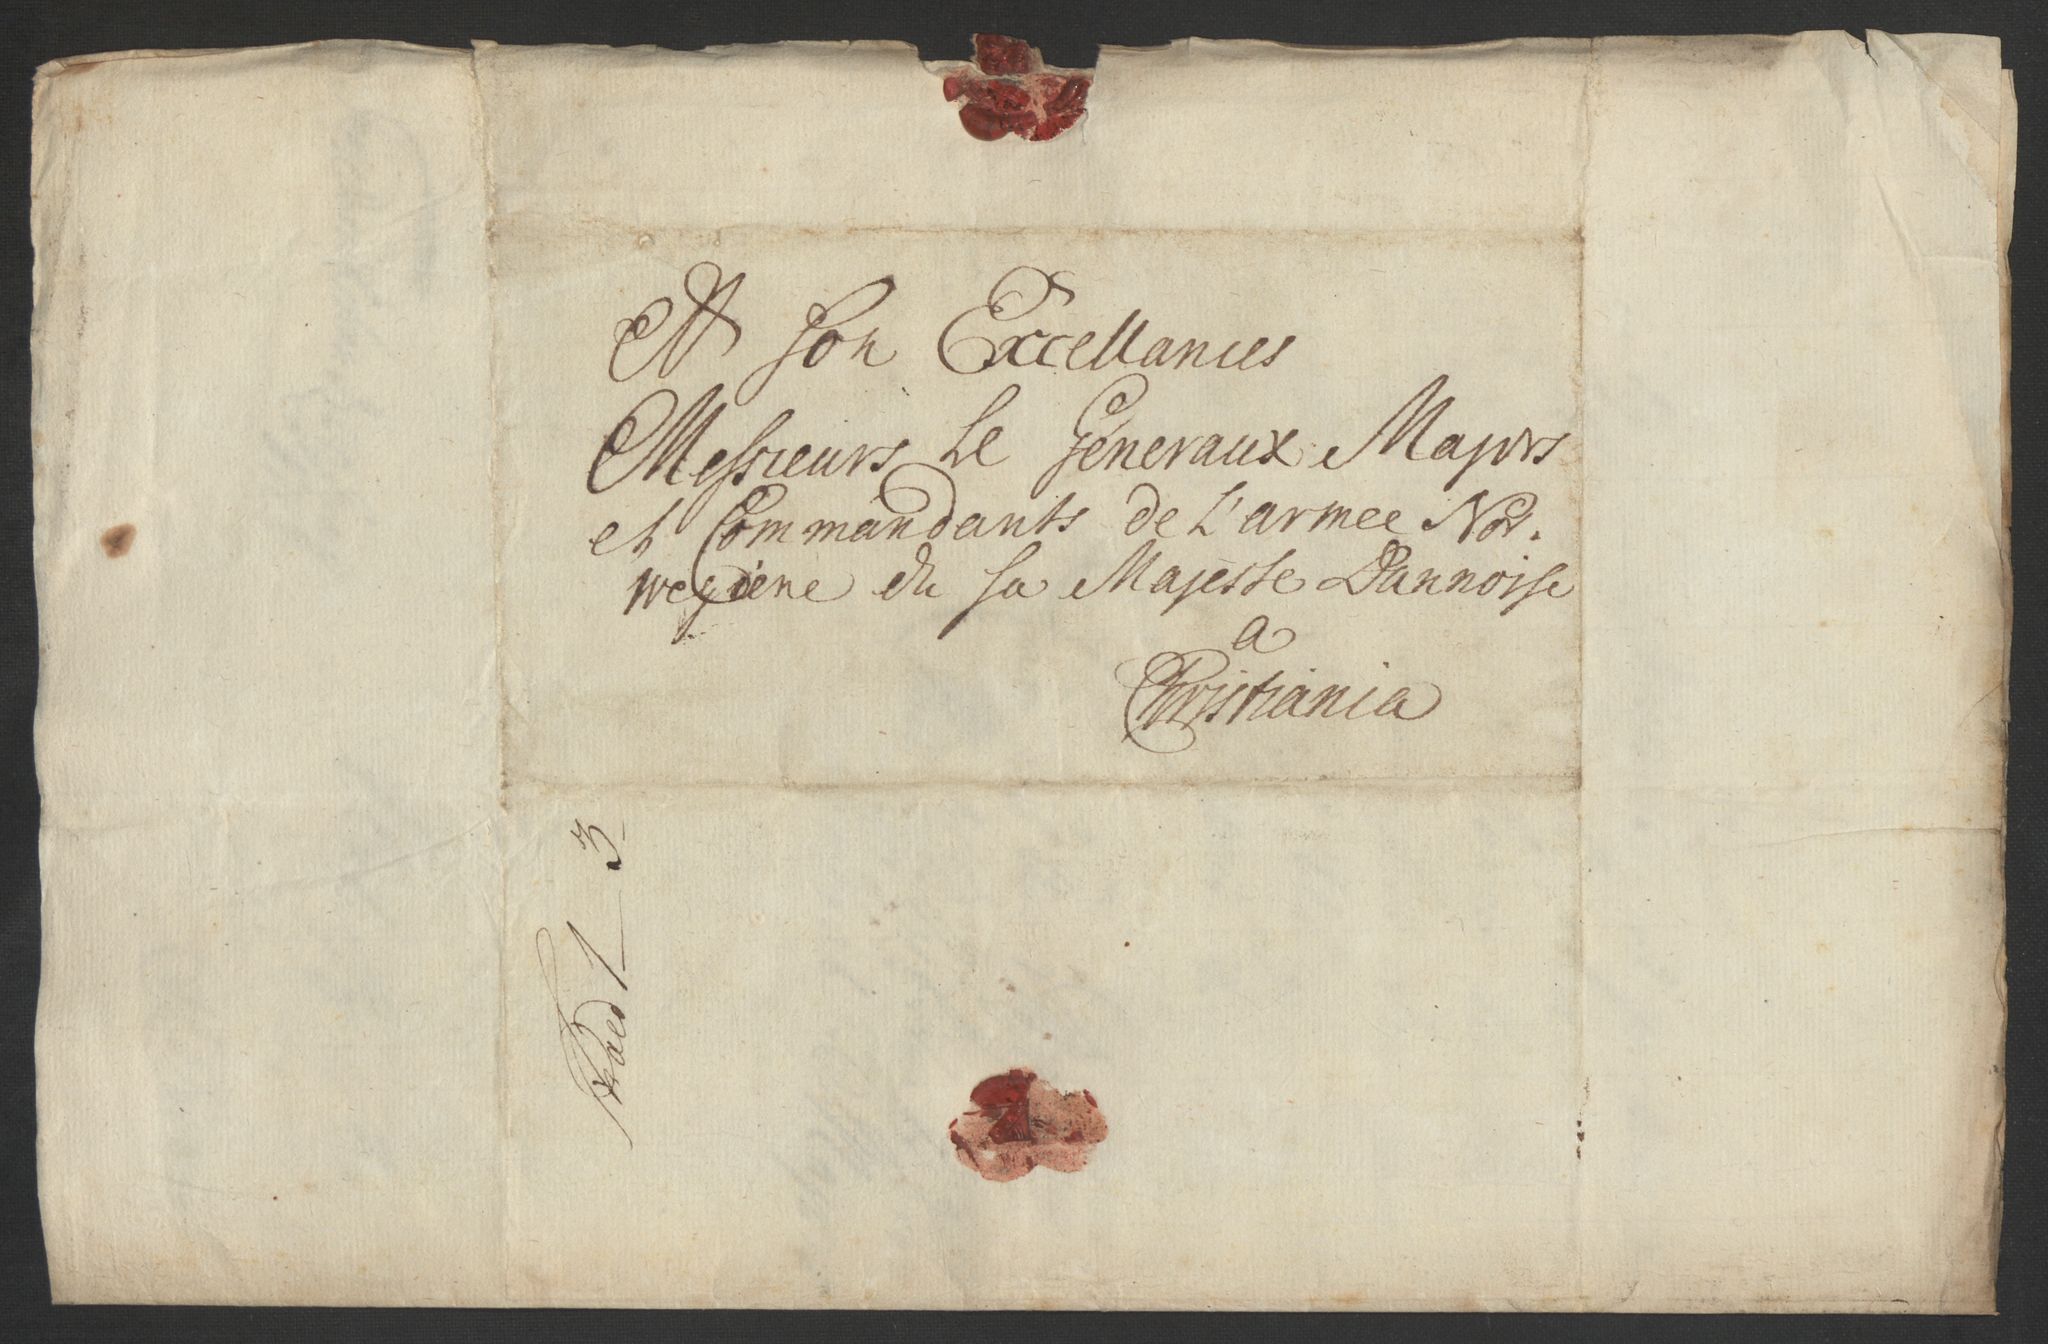 A Son Excellances
Messieurs Le Generaux Majors
et Commandants de L'armee Nor.
wegiene du sa Majeste Dannoise
a
Christiania
1 3